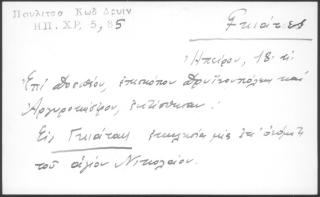 Πουλίτσα Κωδ Δρυιν
ΗΠ. ΧΡ, 5, 85
Γκιάτες
Ηπείρου, 18: κ:
Επί Δοσιθέου, επισκόπου Δρυϊνουπόλεως και
Αργυροκάστρου, εκτίσθησαν:
Εις Γκιάταις εκκλησία μία επ' ονόματι
του αγίου Νικολάου.